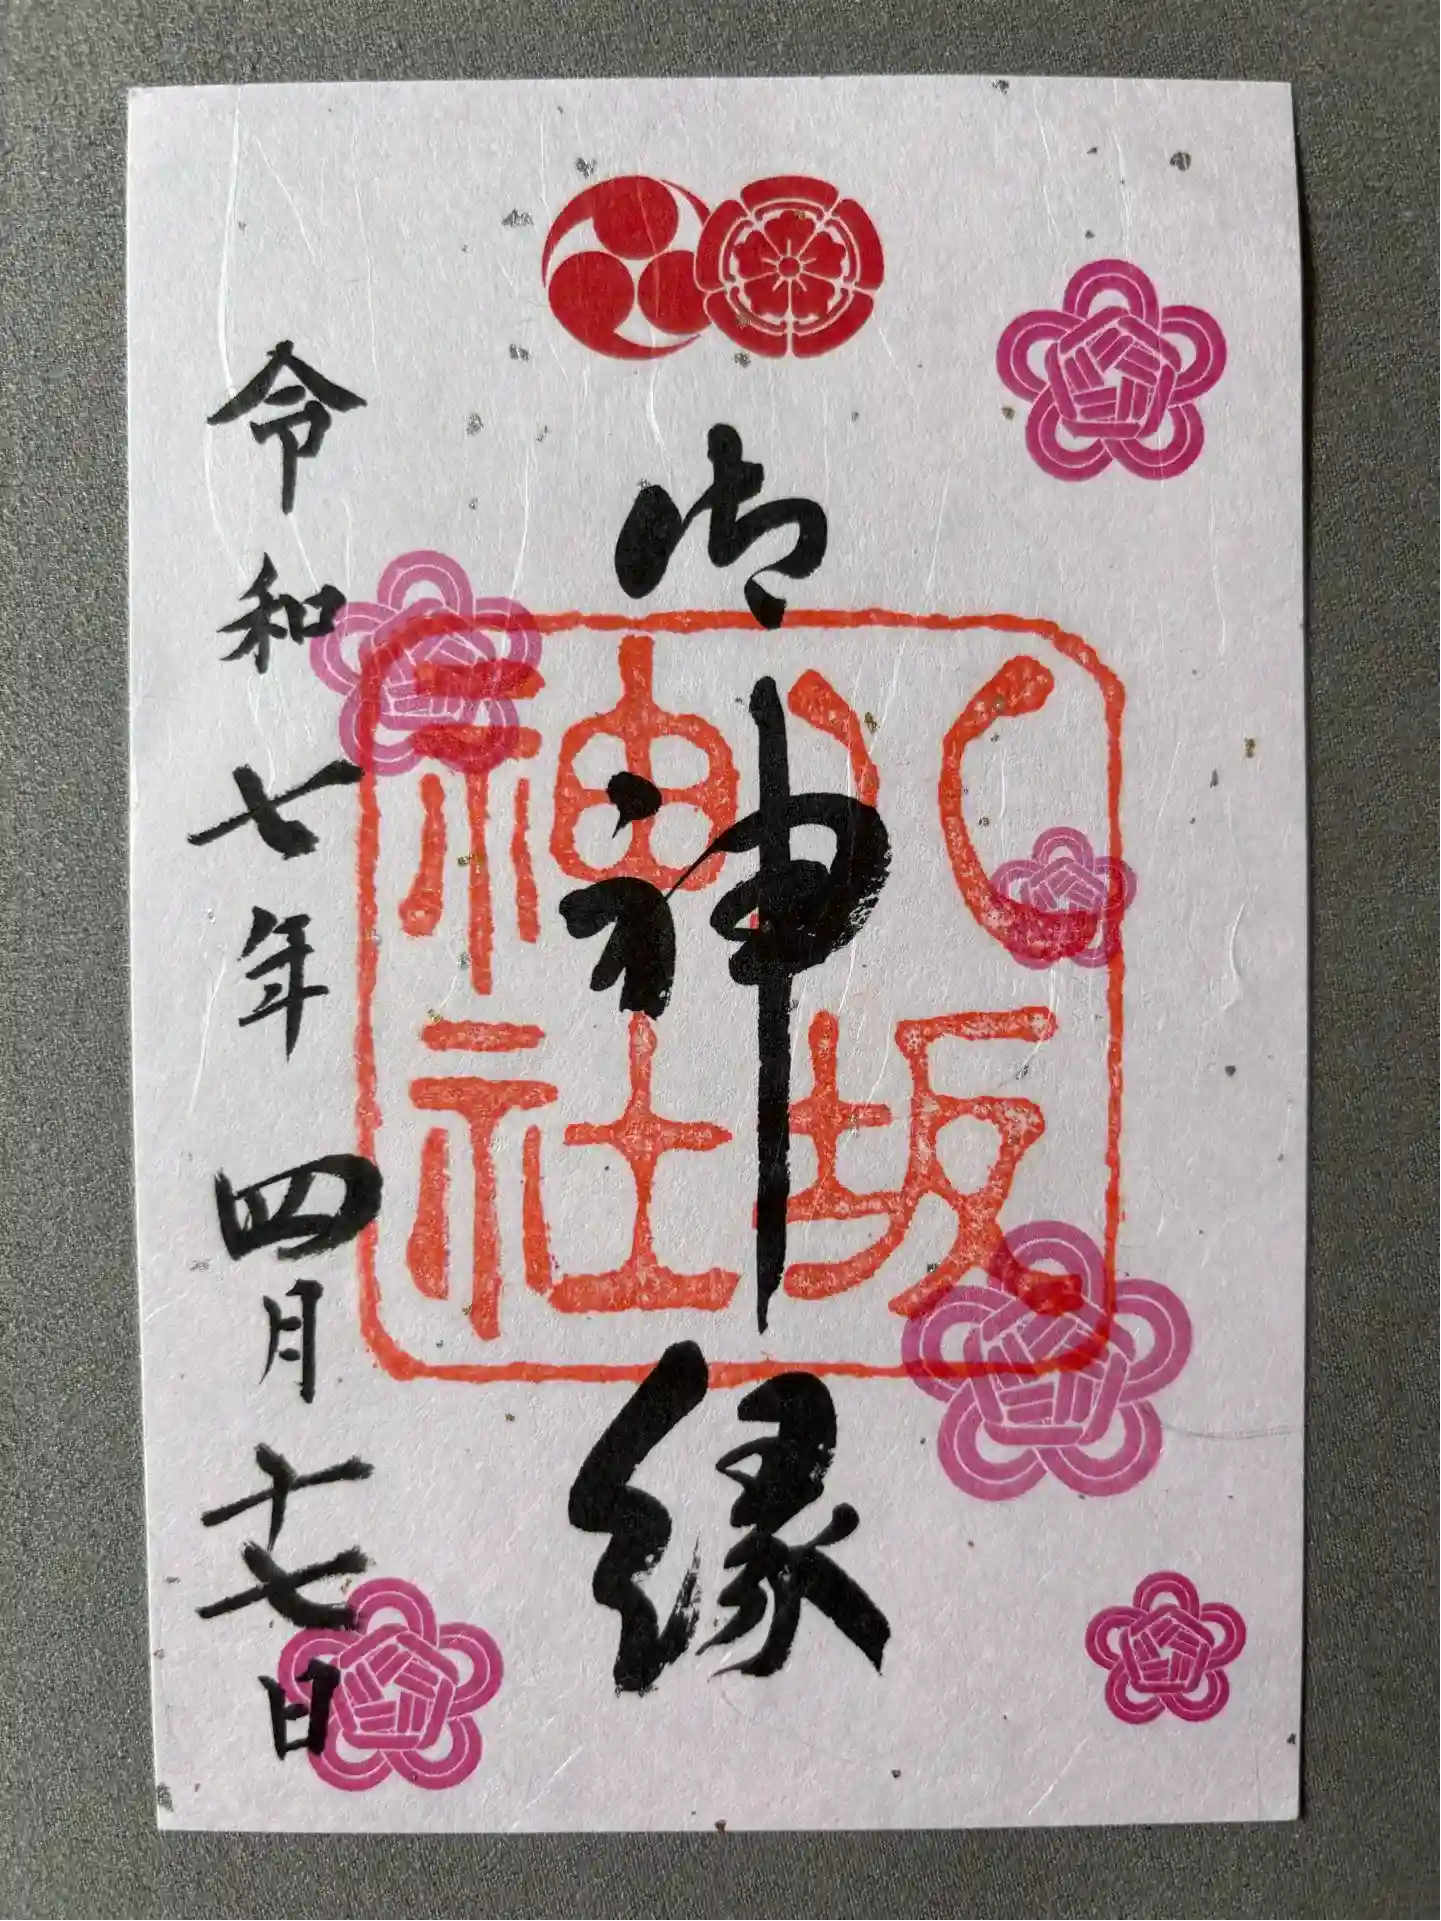 御神縁
八坂
神社
令和七年四月十七日